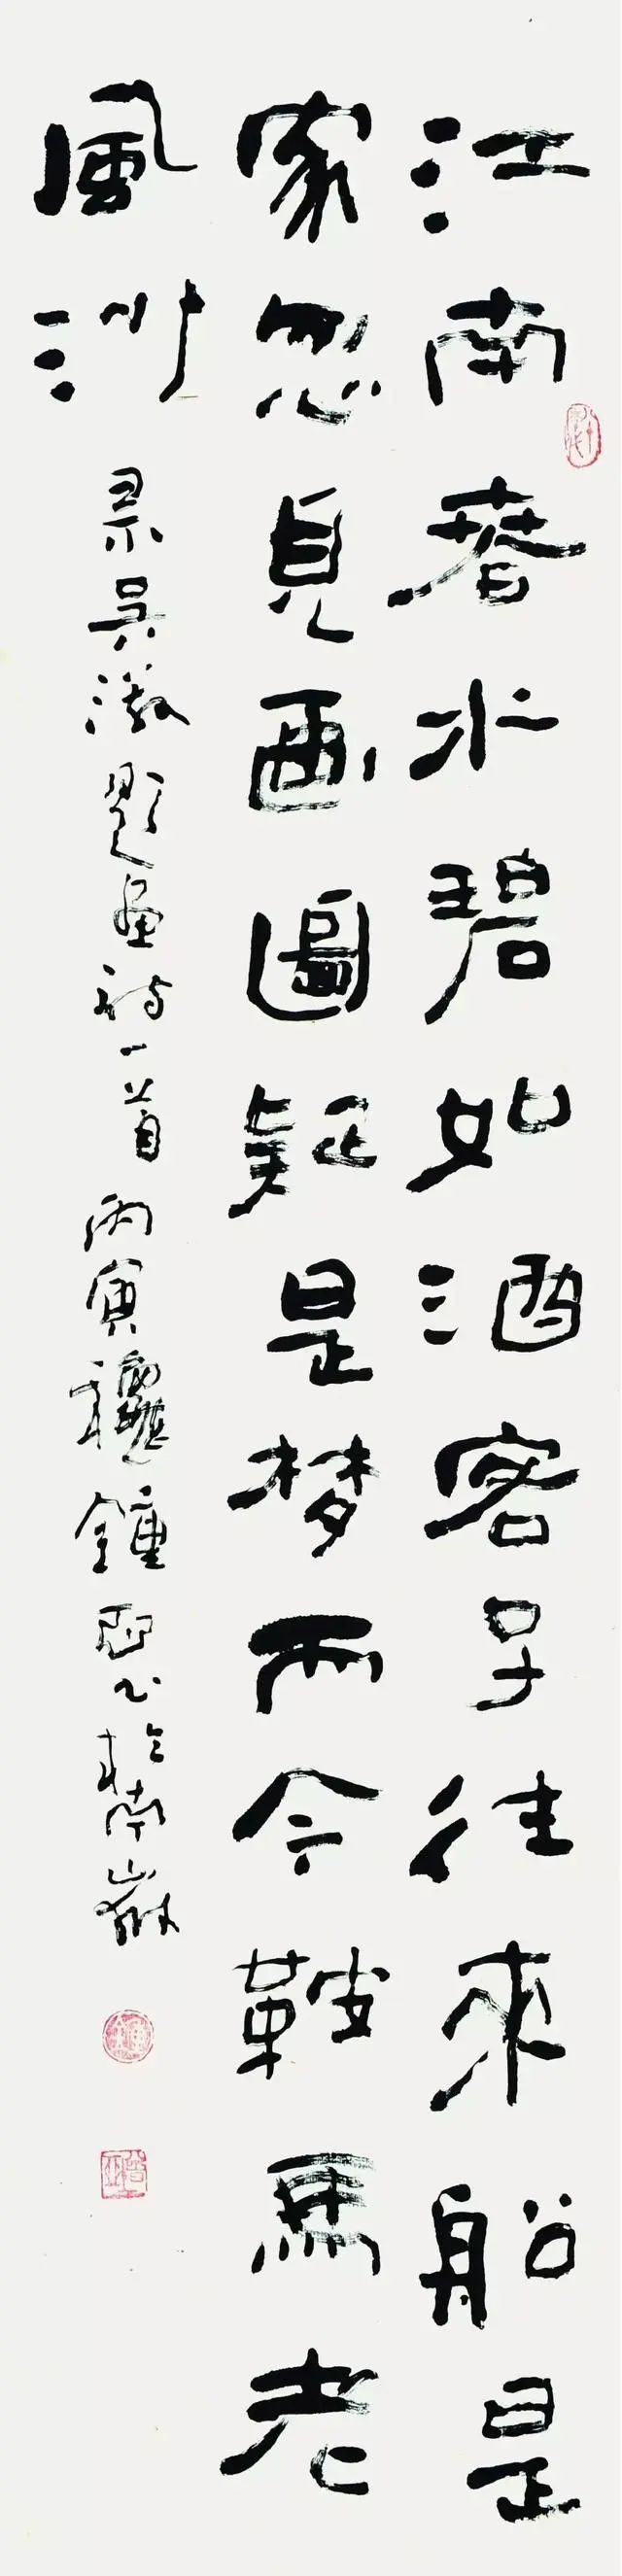 江南春水碧如酒客子往來船是
家忽見画圖疑是梦而今鞍馬老
風沙
录吴激題画詩一首丙寅龝鐘亞書於南嶽